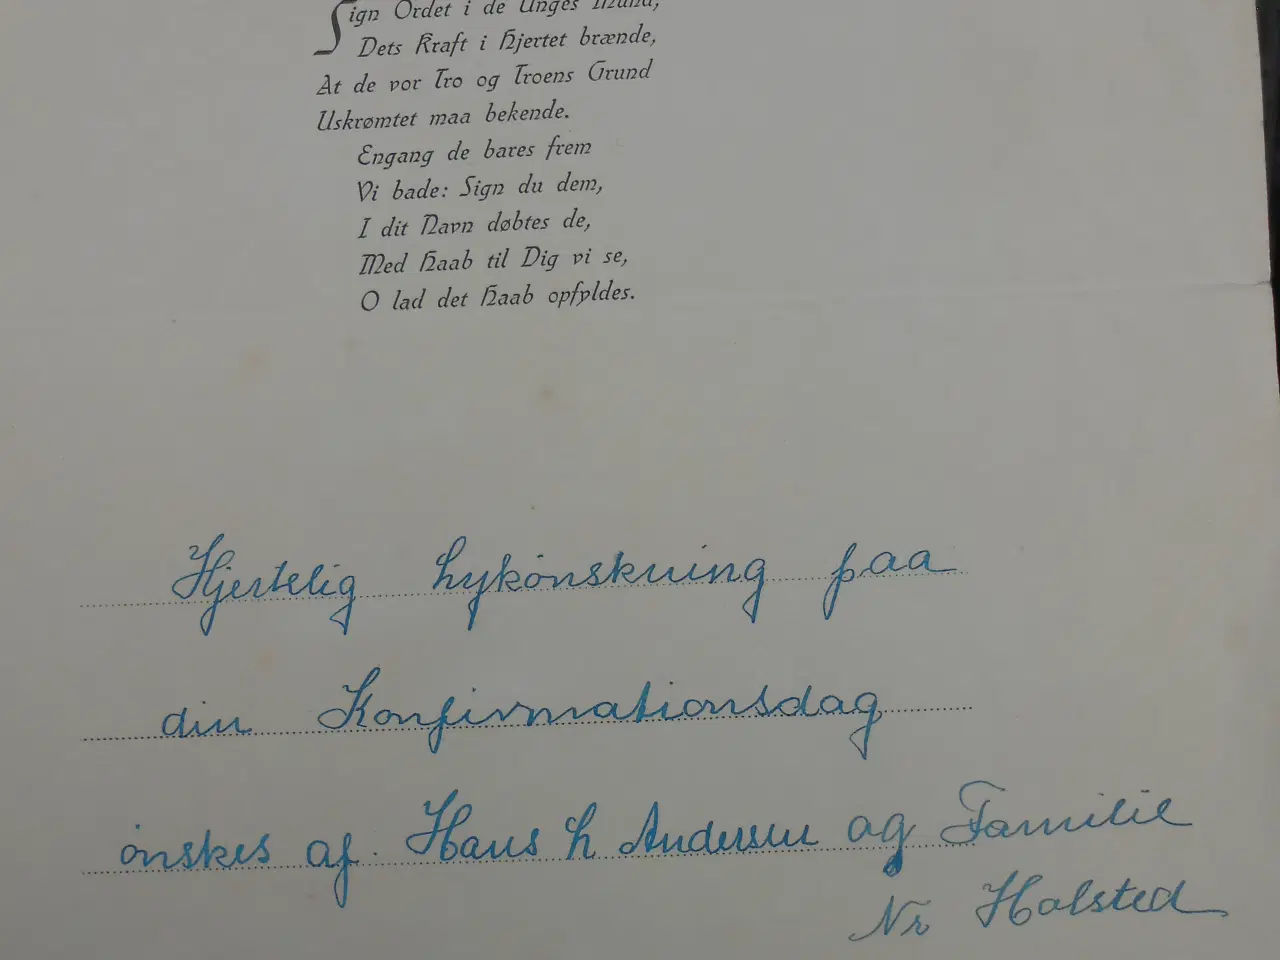 Sign Ordet i de Unges Mund,
Dets Kraft i Hjertet brænde,
At de vor Tro og Troens Grund
Uskrømtet maa bekende.
Engang de bares frem
Vi bade: Sign du dem,
I dit Navn døbtes de,
Med Haab til Dig vi se,
O lad det Haab opfyldes.
Hjertelig Lykönskning paa
din Konfirmationsdag
önskes af. Hans L Andersen og Familie
Nr Halsted